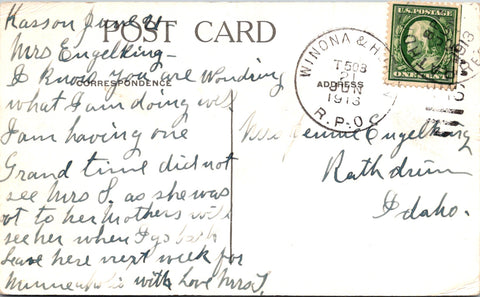 Kasson June 21
POST CARD
Mrs Engelking-
I know you are Wondring
CORRESPONDENCE
what I am doing well
I am having one
Grand time did not
see Mrs S. as she was
at to her mothers will
see her when I go back
leave here next week for
Minneapolis with Love Mrs T.
U.S. POSTAGE
ONE CENT
WINONA &
T.508
21
JUN
1913
R.P.O.
ADDRESS
1913
Engelking
Rathdrum
Idaho.